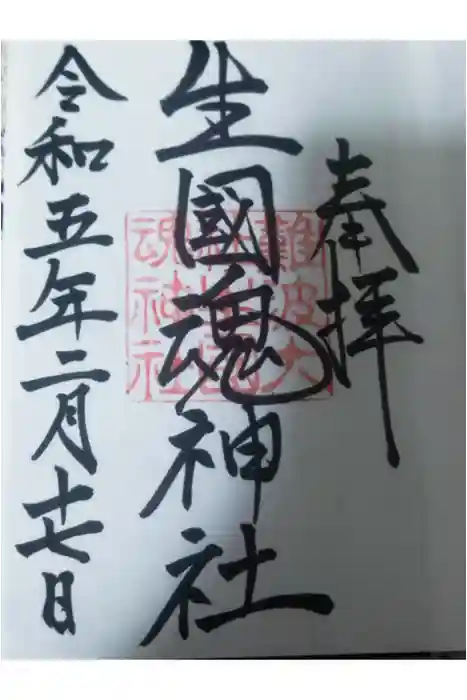 奉拝
生國魂神社
難波大
社生國
魂神社
令和五年二月十七日